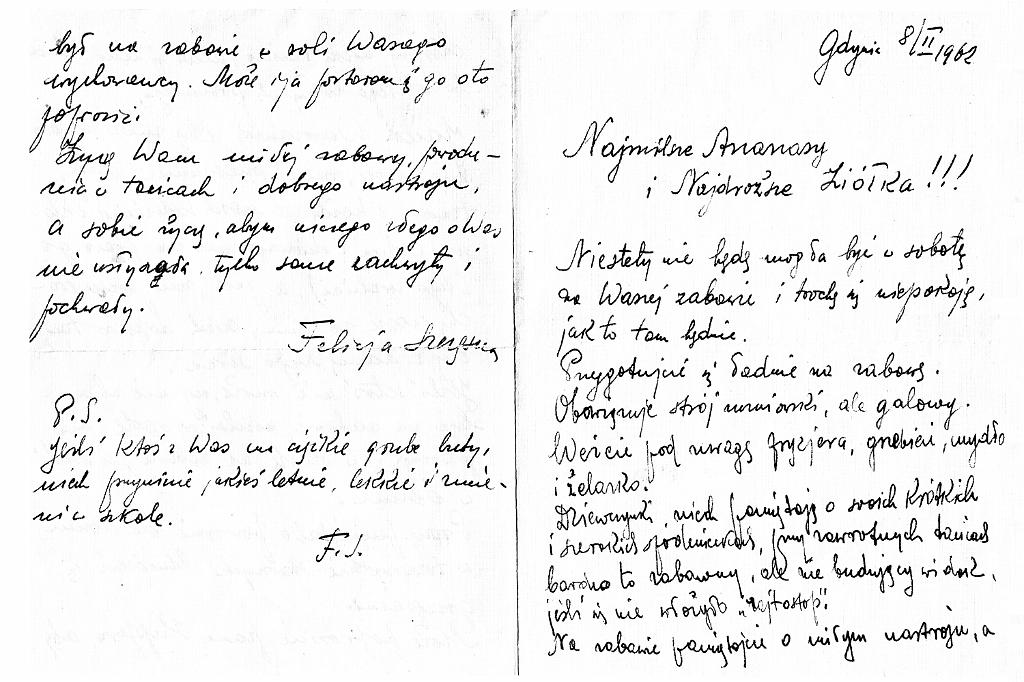 był na zabawie w roli Waszego
wychowawcy. Może i ja postaram się go o to
poprosić.
Życzę Wam miłej zabawy, powodze-
nia w tańcach i dobrego nastroju,
a sobie życzę, abym niczego złego o Was
nie usłyszała, tylko same zachwyty i
pochwały.
Felicja
P.S.
Jeśli ktoś z Was ma ciężkie grube buty,
niech przyniesie jakieś letnie, lekkie i zmie-
ni w szkole.
F.S.
Gdynia 8/II 1962
Najmilsze Ananasy
i Najdroższe Ziółka!!!
Niestety nie będę mogła być w sobotę
na Waszej zabawie i trochę się niepokoję,
jak to tam będzie.
Przygotujcie się ładnie na zabawę.
Obowiązuje strój uczniowski, ale galowy.
Weźcie pod uwagę fryzjera, grzebień, mydło
i żelazko.
Dziewczynki niech pamiętają o swoich krótkich
i szerokich spódniczkach, przy zawrotnych tańcach
bardzo to zabawny, ale nie budujący widok,
jeśli się nie włożyło "rajtostop".
Na zabawie pamiętajcie o miłym nastroju, a